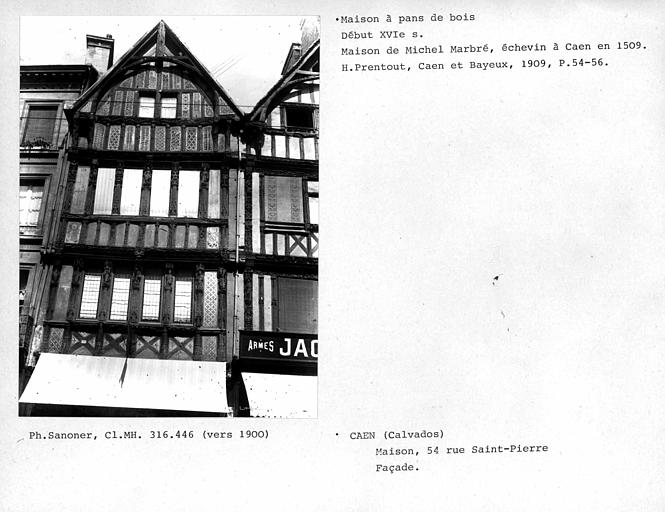 •Maison à pans de bois
Début XVIe s.
Maison de Michel Marbré, échevin à Caen en 1509.
H.Prentout, Caen et Bayeux, 1909, P.54-56.
ARMES JAC
Ph.Sanoner, Cl.MH. 316.446 (vers 1900)
• CAEN (Calvados)
Maison, 54 rue Saint-Pierre
Façade.